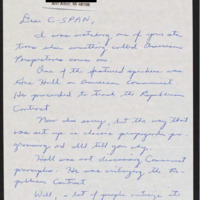 Dear C-SPAN,
I was watching one of your sta-
tions when something called American
Perspectives came on.
One of the featured speakers was
Gus Hall - American communist.
He proceeded to trash the Republican
Contract.
Now I'm sorry, but the way that
was set up is classic propaganda pro-
gramming and I'll tell you why.
Hall was not discussing Communist
principles. He was critiquing the Re-
publican Contract.
Well, a lot of people critique its